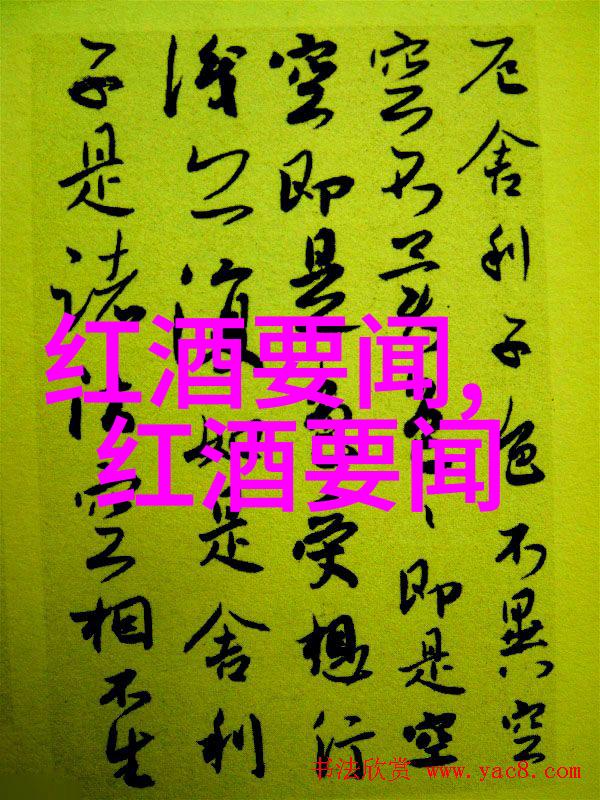 厄舍利子色不異空
空不異色色即是空
空即是色受想行
識亦復如是舍利
子是諸法空相不生
红酒要闻,
红酒要闻
书法欣赏 www.yac8.com